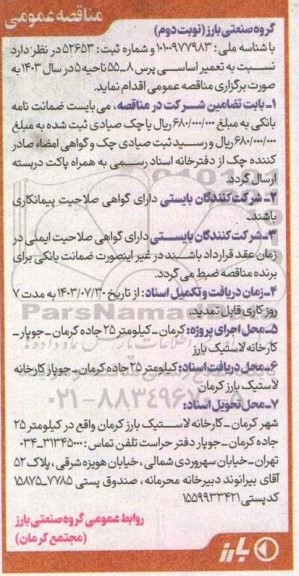 مناقصه عمومی
گروه صنعتی بارز (نوبت دوم)
با شناسه ملی: ۱۰۱۰۰۹۷۷۹۸۳ و شماره ثبت: ۵۲۶۵۳ در نظر دارد
نسبت به تعمیر اساسی پرس ۸_۵۵ ناحیه ۵ در سال ۱۴۰۳ به
صورت برگزاری مناقصه عمومی اقدام نماید.
۱_بابت تضامین شرکت در مناقصه، می بایست ضمانت نامه
بانکی به مبلغ ۶۸۰/۰۰۰/۰۰۰ ریال یا چک صیادی ثبت شده به مبلغ
۶۸۰/۰۰۰/۰۰۰ ریال و رسید ثبت صیادی چک و گواهی امضاء صادر
کننده چک از دفترخانه اسناد رسمی به همراه پاکت دربسته
ارسال گردد.
۲_شرکت کنندگان بایستی دارای گواهی صلاحیت پیمانکاری
باشند.
۳_شرکت کنندگان بایستی دارای گواهی صلاحیت ایمنی در
زمان عقد قرارداد باشند در غیر اینصورت ضمانت بانکی برای
برنده مناقصه ضبط می گردد.
۴_زمان دریافت و تکمیل اسناد: از تاریخ ۱۴۰۳/۰۷/۳۰ به مدت ۷
روز کاری قابل تمدید.
۵_محل اجرای پروژه: کرمان _ کیلومتر ۲۵ جاده کرمان _ جوپار _
کارخانه لاستیک بارز
۶_محل دریافت اسناد: کیلومتر ۲۵ جاده کرمان _ جوپار کارخانه
لاستیک بارز کرمان
۷_محل تحویل اسناد:
شهر کرمان _ کارخانه لاستیک بارز کرمان واقع در کیلومتر ۲۵
جاده کرمان _ جوپار دفتر حراست تلفن تماس: ۳۱۳۴۵۰۰۰_۰۳۴
تهران _ خیابان سهروردی شمالی، خیابان هویزه شرقی، پلاک ۵۲
آقای بیرانوند دبیرخانه محرمانه، صندوق پستی ۷۷۸۵_۱۵۸۷۵
کد پستی ۱۵۵۹۹۳۳۴۲۱
روابط عمومی گروه صنعتی بارز
(مجتمع کرمان)
بارز
ParsNamad
۰۲۱-۸۸۳۴۹۶۷۰